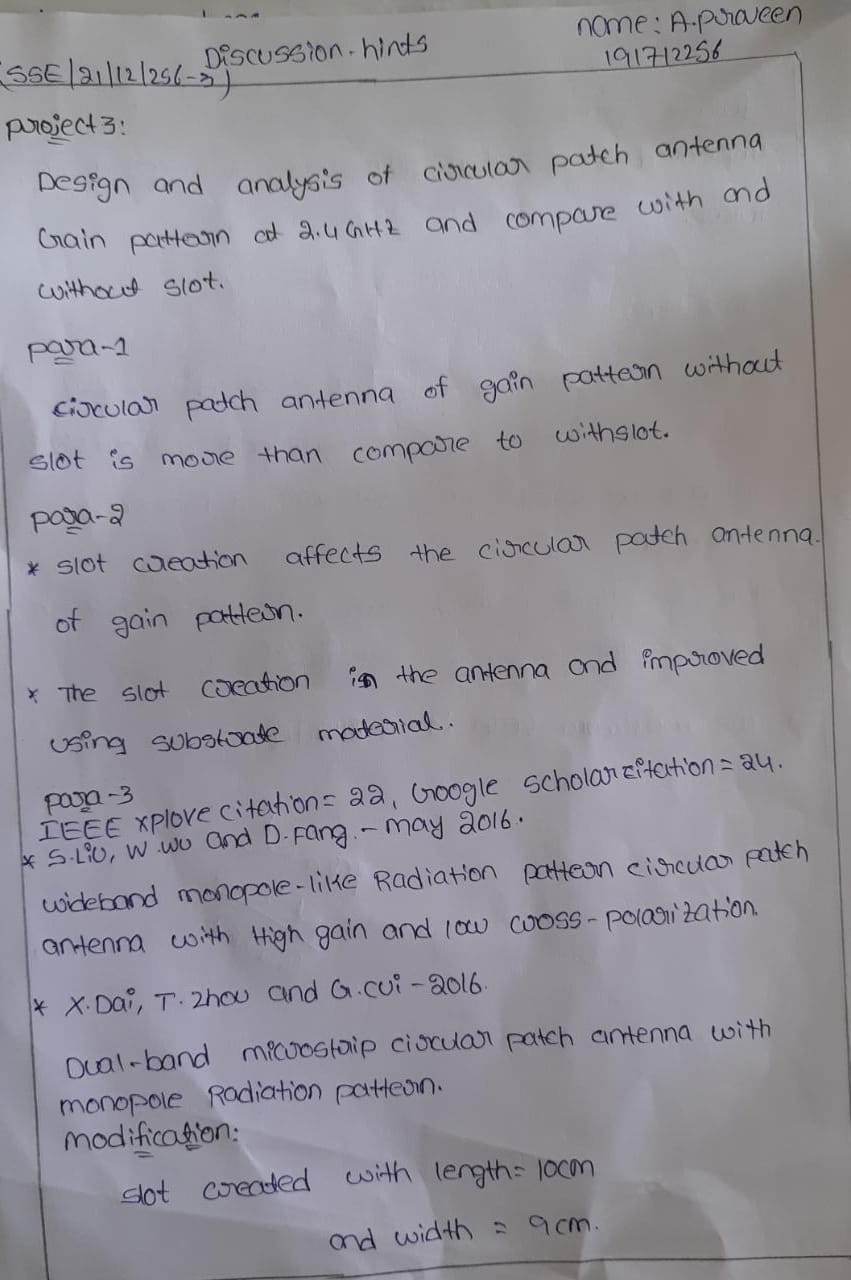 Discussion-hints
name: A.praveen
191712256
(SSE/21/12/256-3)
project 3:
Design and analysis of circular patch antenna
Gain pattern at 2.4 GHz and compare with and
without slot.
para-1
circular patch antenna of gain pattern without
slot is more than compare to withslot.
para-2
* slot creation affects the circular patch antenna.
of gain pattern.
* The slot creation in the antenna and improved
using substrate material.
para-3
IEEE xplove citation = 22, Google scholar citation = 24.
* S.Liu, W.wu and D.Fang.- may 2016.
wideband monopole-like Radiation pattern circular patch
antenna with High gain and low cross-polarization.
* X.Dai, T.zhou and G.cui - 2016.
Dual-band microstrip circular patch antenna with
monopole Radiation pattern.
modification:
slot created with length = 10cm
and width = 9cm.